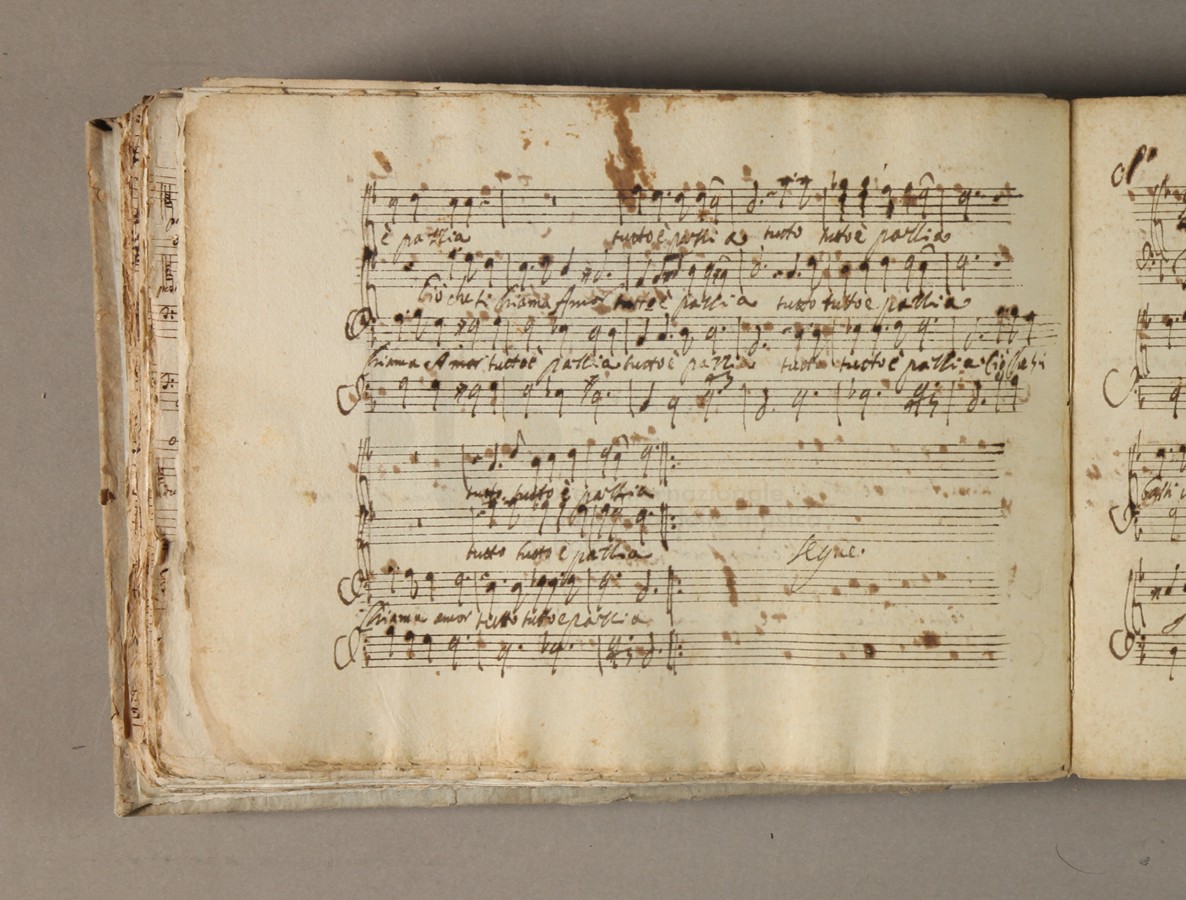 è pazzia tutto è pazzia tutto tutto è pazzia
Ciò che si chiama Amor tutto è pazzia tutto tutto e pazzia
chiama Amor tutto è pazzia tutto è pazzia tutto tutto è pazzia Ciò che si
tutto tutto è pazzia
tutto tutto è pazzia Segue.
chiama amor tutto tutto e pazzia